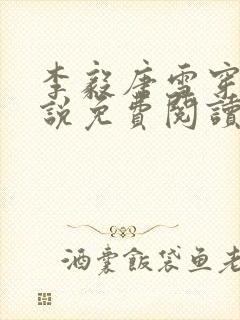 李毅唐雪穿
説免費閱讀
酒囊飯袋鱼老